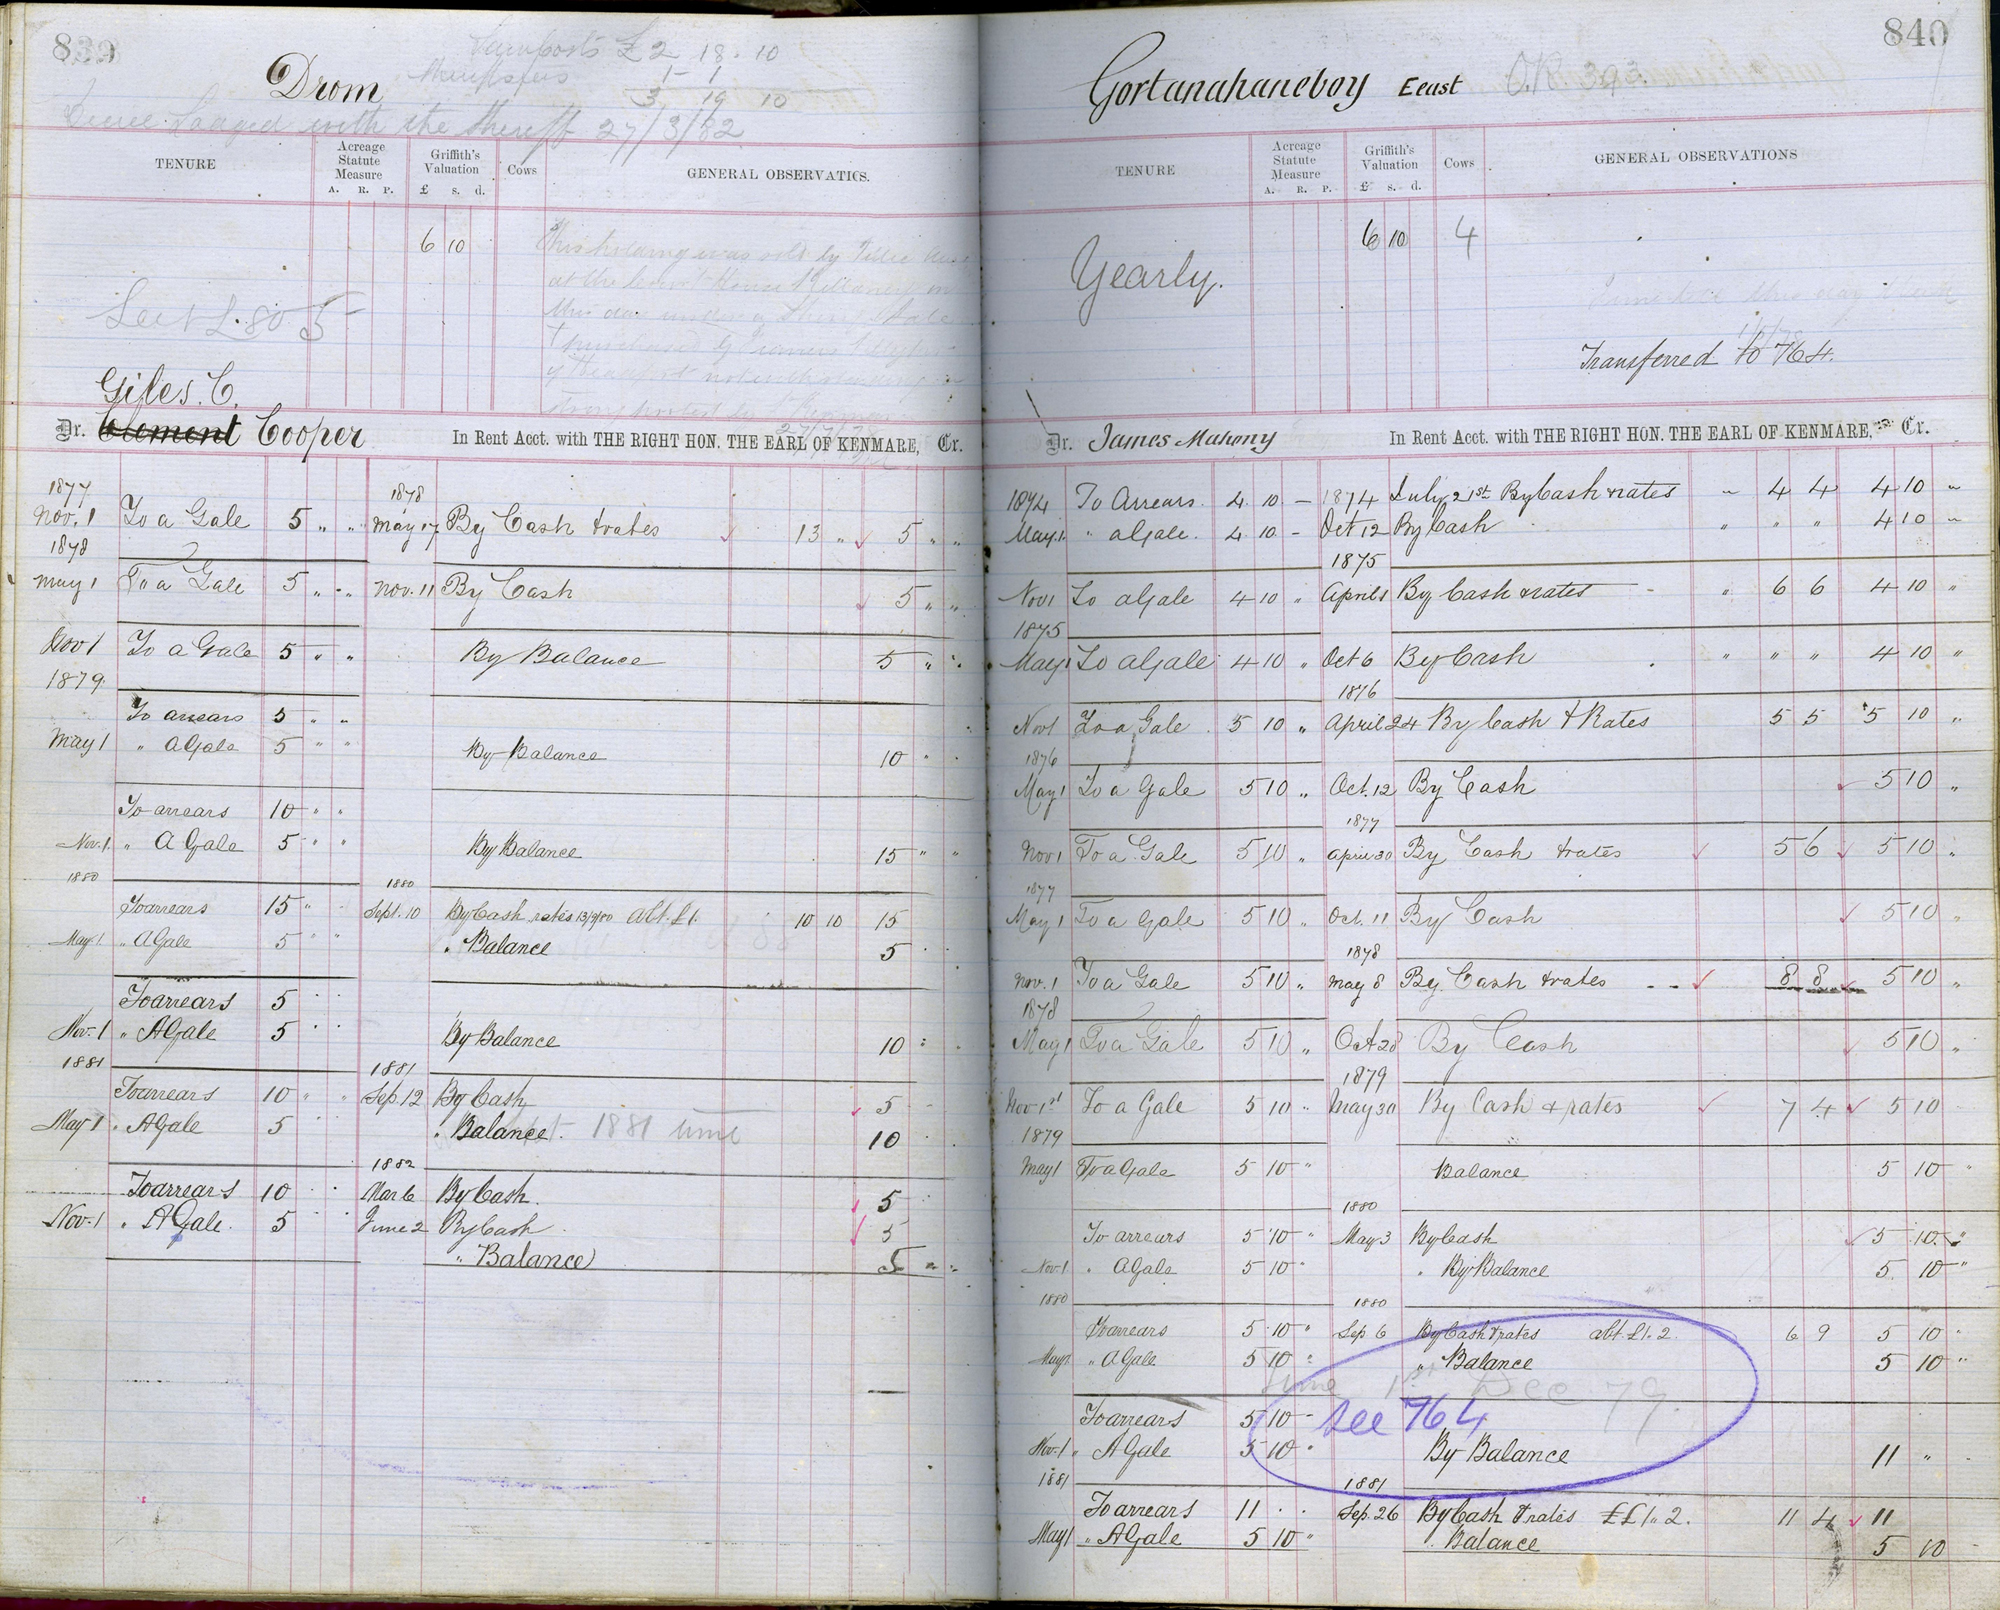 839
Law Costs £2 18. 10
1 - 1
3 19 10
Drom
Decree Lodged with the Sheriff 27/3/82
TENURE
Acreage Statute Measure A. R. P.
Griffith's Valuation £ s. d.
Cows
GENERAL OBSERVATIONS.
6 10
This holding was sold by
at the Court House Killarney on
this day under a Sheriff Sale
Giles. C.
Dr. Clement Cooper In Rent Acct. with THE RIGHT HON. THE EARL OF KENMARE, Cr.
1877 1878
Nov. 1 To a Gale 5 " " May 17 By Cash & rates 13 " 5 " "
1878
May 1 To a Gale 5 " " Nov. 11 By Cash 5 " "
Nov 1 To a Gale 5 " " By Balance 5 " "
1879
To arrears 5 " "
May 1 " A Gale 5 " " By Balance 10 " "
To arrears 10 " "
Nov. 1. " A Gale 5 " " By Balance 15 " "
1880 1880
To arrears 15 " Sept. 10 By Cash rates 13/9/80 abt. £1. 10 10 15
May 1 " A Gale 5 " " " Balance 5
To arrears 5
Nov. 1 " A Gale 5 By Balance 10
1881 1881
To arrears 10 " " Sep. 12 By Cash 5
May 1 " A Gale 5 " Balance. 1881 time 10
1882
To arrears 10 Mar 6 By Cash. 5
Nov. 1 " A Gale. 5 June 2 By Cash 5
" Balance 5 " "
840
Gortanahaneboy Eeast O.R. 393
TENURE
Acreage Statute Measure A. R. P.
Griffith's Valuation £ s. d.
Cows
GENERAL OBSERVATIONS
Yearly. 6 10 4
1/5/78
Transferred to 764.
Dr. James Mahony In Rent Acct. with THE RIGHT HON. THE EARL OF KENMARE, Cr.
1874 To Arrears. 4. 10 - 1874 July 21st By Cash & rates " 4 4 4 10 "
May 1. " a Gale. 4. 10 - Oct 12 By Cash " " " 4 10 "
1875
Nov 1 To a Gale 4 10 " April 1 By Cash & rates " 6 6 4 10 "
1875
May 1 To a Gale 4 10 " Oct 6 By Cash " " " 4 10 "
1876
Nov 1 To a Gale 5 10 " April 24 By Cash & Rates 5 5 5 10 "
1876
May 1 To a Gale 5 10 " Oct. 12 By Cash 5 10 "
1877
Nov 1 To a Gale 5 10 " April 30 By Cash & rates 5 6 5 10 "
1877
May 1 To a Gale 5 10 " Oct. 11 By Cash 5 10 "
1878
Nov. 1 To a Gale 5 10 " May 8 By Cash & rates 8 8 5 10 "
1878
May 1 To a Gale 5 10 " Oct 28 By Cash 5 10 "
1879
Nov 1st To a Gale 5 10 " May 30 By Cash & rates 7 4 5 10
1879
May 1 To a Gale 5 10 " Balance 5 10 "
1880
To arrears 5 10 " May 3 By Cash 5 10 "
Nov. 1 " A Gale 5 10 " " By Balance 5 10 "
1880 1880
To arrears 5 10 " Sep 6 By Cash & rates abt. £1. 2 6 9 5 10 "
May 1 " A Gale 5 10 " " Balance 5 10 "
Time 1st Dec 79.
To arrears 5 10 - see 764
Nov. 1 " A Gale 5 10 " By Balance 11 "
1881 1881
To arrears 11 Sep. 26 By Cash & rates ££1. 2. 11 4 11
May 1 " A Gale 5 10 " " Balance 5 10